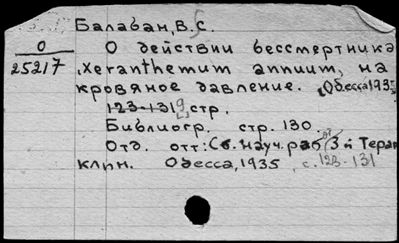 Балабан, В. С.
О
25217
О действии бессмертника
"Xeranthemum annuum", на
кровяное давление. Одесса 193
123-131 9 стр.
Библиогр. стр. 130.
Отд. отт: Сб. науч. раб от 3й Терап
клин. Одесса, 1935 с. 123-131